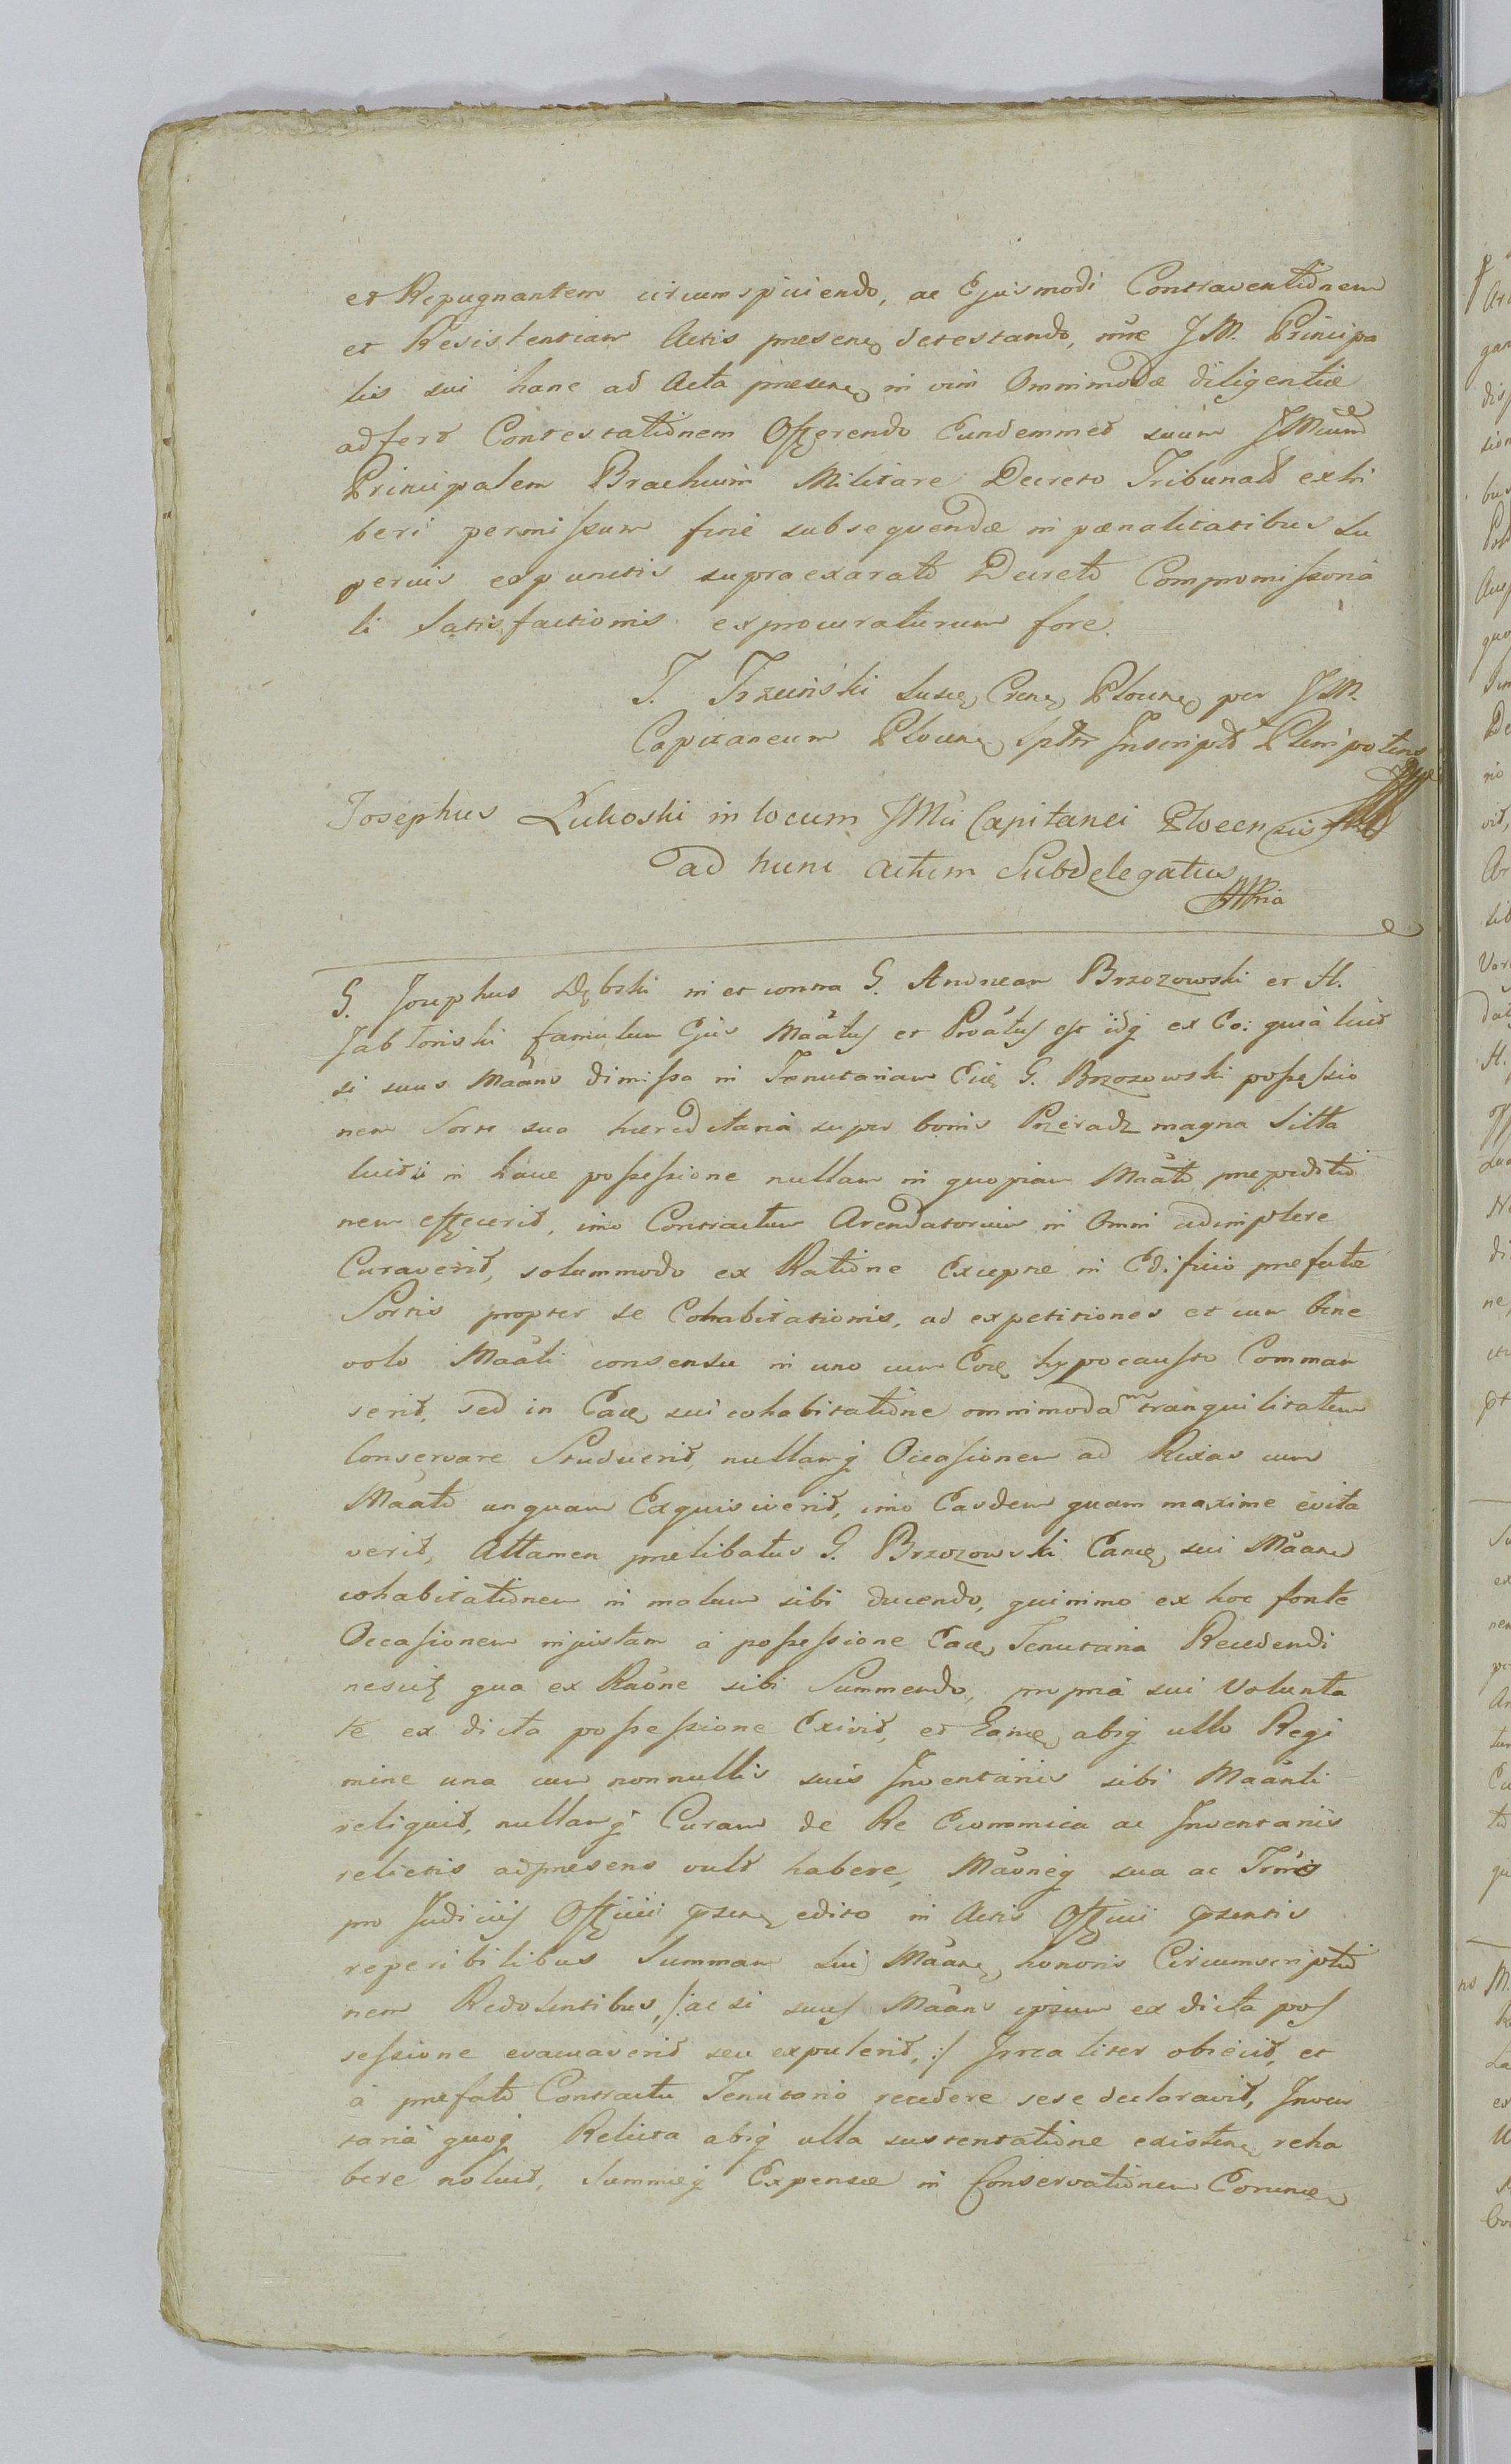 et Repugnantem circumspiciendo, ac Ejusmodi Contraventionem
et Resistentiam Actis presen detestando, nñe JM. Principa
lis sui hanc ad Acta presen in vim Omnimodæ diligentiæ
adfert Contestationem Offerendo Eundemmet suum JMium
Principalem Brachium Militare Decreto Tribunald exhi
beri permissum fine subsequendæ in pænalitatibus Su
perius expunctis supra exarato Decreto Compromissoria
li Satisfactionis exprocuraturum fore.
T. Trzciński Susce Crene Plocne per JM.
Capitaneum Plocne sptr Inscript Plenipotens
Josephus Lukoski in locum JMci Capitanei Plocensis
ad hunc actum Subdelegatus
mpria
G. Josephus Dębski in et contra G. Andream Brzozowski et H.
Jabłonski famulum Ejus Maatus et Proatus est idq ex Eo: quia licet
si suus Maans dimissa in Tenutariam Eice G. Brzozowski possessio
nem Sorte sua hæreditaria super bonis Przeradz magna Sitta
licet in hance possessione nullam in quopiam Maato prepedito
nem effecerit, imo Contractum Arendatorium in Omni adimplere
Curaverit, solummodo ex Ratione Exceptæ in Edificio prefatæ
Sortis propter se Cohabitationis, ad expetitiones et cum bene
volo Maati consensu in uno cum Eoce hypocausto Comman
serit, sed in Eace sui cohabitatione omnimodam tranquilitatem
Conservare Studuerit, nullamq Occasionem ad Rixas cum
Maato unquam Exquisiverit, imo Easdem quam maxime evita
verit, Attamen prelibatus G. Brzozowski Eance sui Maane
cohabitationem in malum sibi ducendo, quinimo ex hoc fonte
Occasionem injustam a possessione Eace Tenutaria Recedendi
nescit qua ex Raone sibi Summendo, propria sui Volunta
te ex dicta possessione Exivit, et Eance absq ullo Regi
mine una cum nonnullis suis Inventariis sibi Maanti
reliquit, nullamq Curam de Re Economica ac Inventariis
relictis adpresens vult habere, Maoneq sua ac Trmis
pro Judiciis Officiii pzene edito in Actis Officii pzentis
reperibilibus Summam Sui Maane honoris Circumscriptio
nem Redolentibus, /: ac si suus Maans ipsum ex dicta pos
sessione evacuaverit seu expulerit, :/ Jrrealiter obiecit, et
à prefato Contractu Tenutorio recedere sese declaravit, Inven
taria quoq Relicta absq ulla sustentatione existene reha
bere noluit, Summæq Expensæ in Conservationem Eorunce